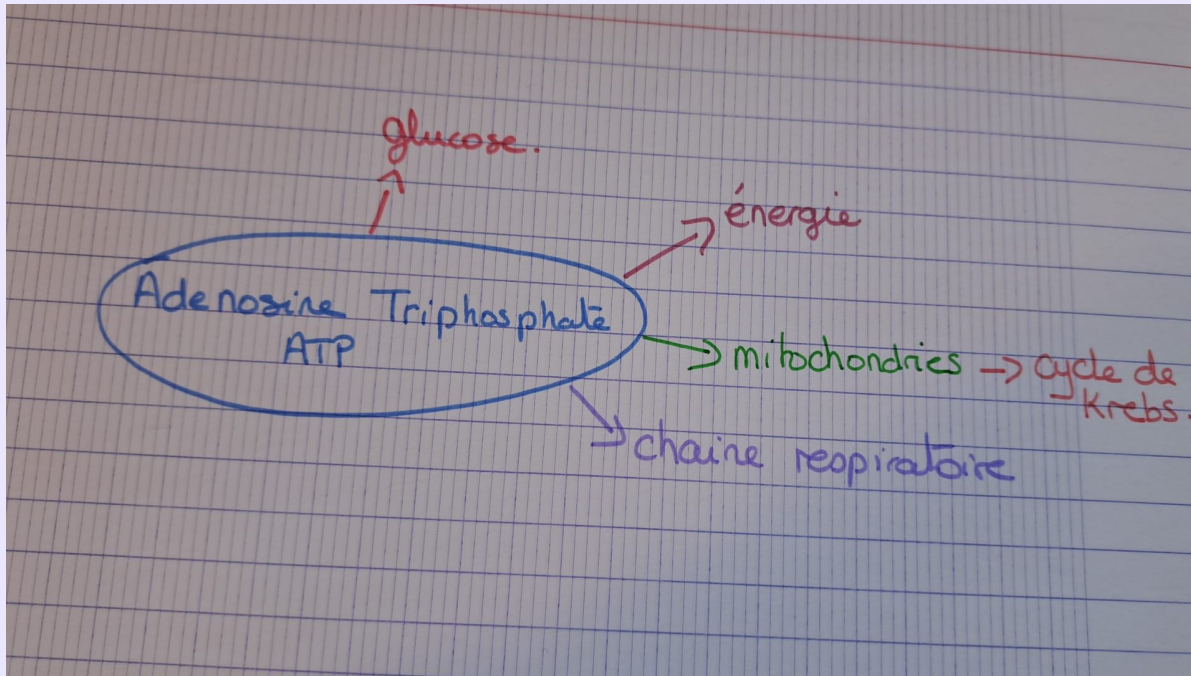 glucose.
énergie
Adenosine Triphosphate
ATP
mitochondries → cycle de
Krebs.
chaine respiratoire